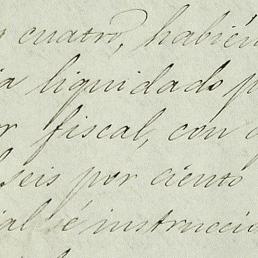 cuatro, habién
liquidado p
fiscal, con
seis por ciento
é instrucció